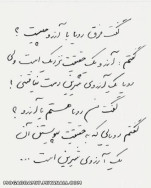 گفت فرق رویا با آرزو چیست ؟
گفتم : آرزو یک حقیقت نزدیک است ولی
رویا یک آرزوی شیرین دست نیافتنی !
گفت من رویا هستم یا آرزو ؟
گفتم رویای که به حقیقت پیوستن آن
یک آرزوی شیرین است ...